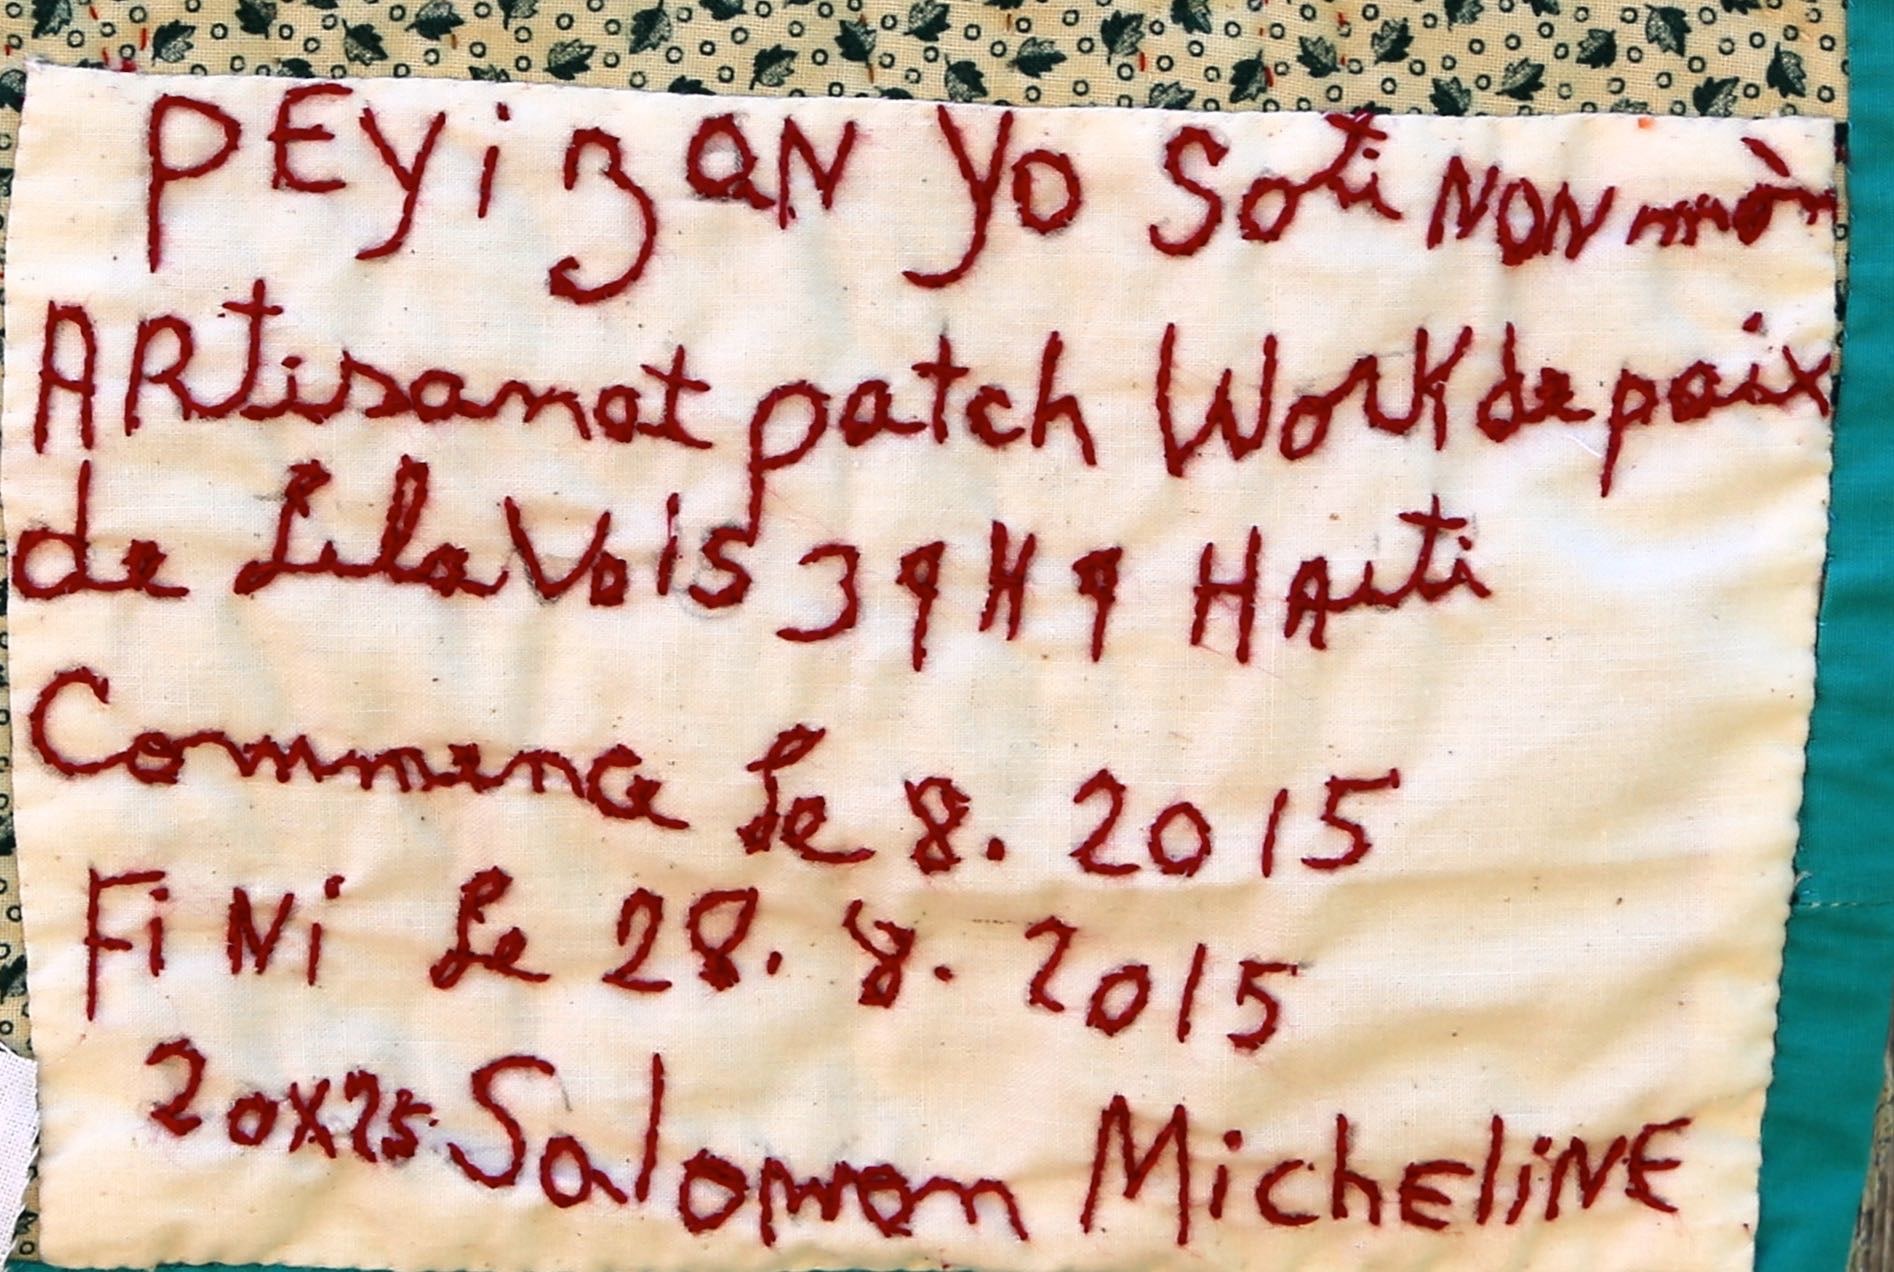 PEYizaN yo Soti NON mòn
ARtisanat patch Work de paix
de Lilavois 39 H 9 HAiti
Commence Le 8. 2015
FiNi Le 28. 8. 2015
20x25 Salomon MichEliNE